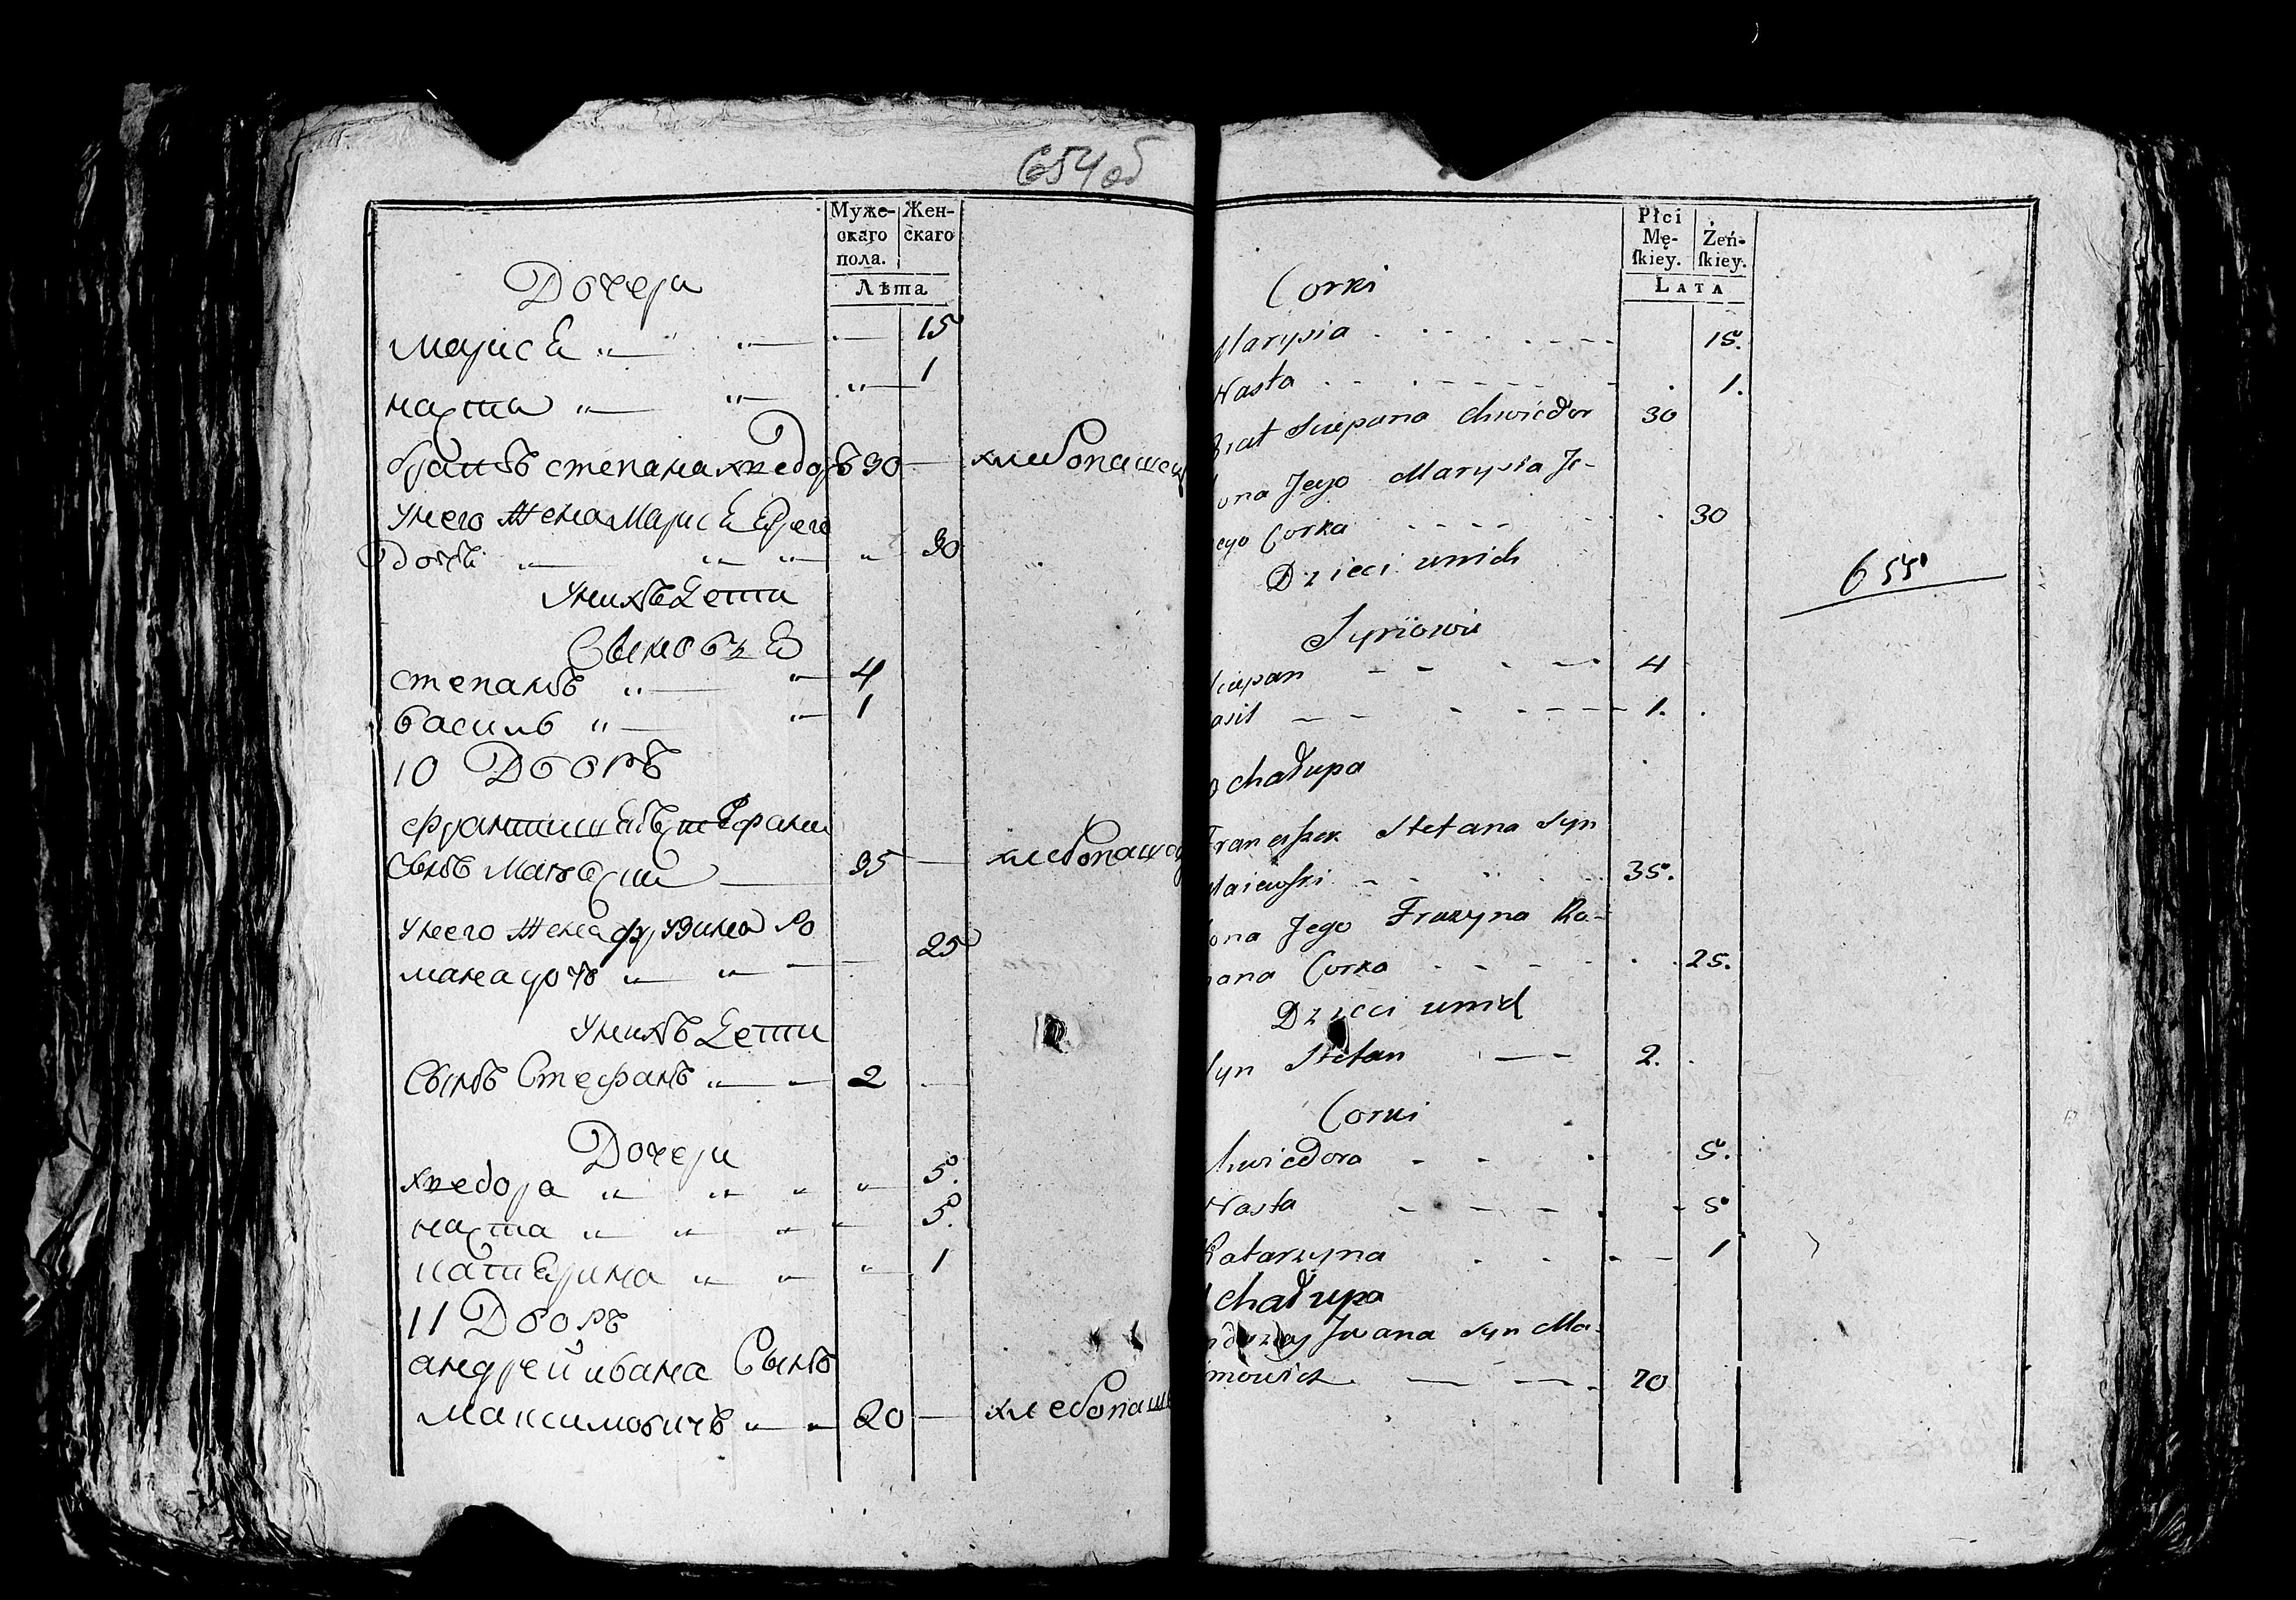 654 об
Муже-
скаго
пола.
Жен-
скаго
Лѣта
Дочери
Марися 15
Наста 1
братъ степана хведоръ 30 хлебопашец
у него жена Марися
дочь 30
у нихъ дети
Сыновья
степанъ 4
василь 1
10 Дворъ
Францишекъ стефана
сынъ 35 хлебопашец
у него жена фрузина Ро
мана дочь 25
у нихъ дети
Сынъ Стефанъ 2
Дочери
хведора 5.
наста 5.
катерина 1
11 Дворъ
андрей ивана Сынъ
Максимовичъ 20 хлебопаше
Płci
Mę-
ſkiey.
Żeń-
ſkiey.
Lata
Corki
Marysia 15.
Nasta 1.
Brat Sciepana Chwiedor 30
ona Jego Marysia Je-
ego Corka 30
Dzieci unich
655
Synowie
ciepan 4
asil 1.
chałupa
Franciszek Stefana Syn
Maiewſki 35.
ona Jego Fruzyna Ro-
mana Corka 25.
Dzieci unich
Syn Stefan 2.
Corki
hwiedora 5.
Nasta 5
Katarzyna 1
chałupa
ndrzey Jwana Syn Ma-
mowicz 20